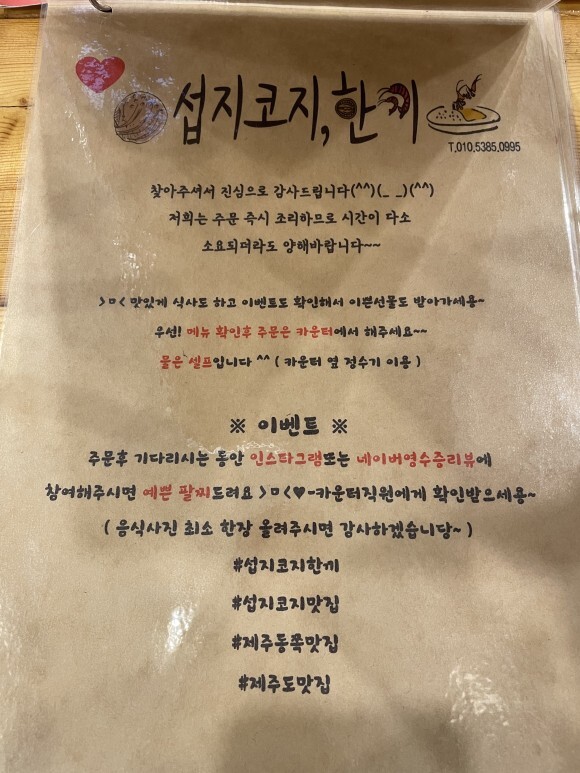 섭지코지, 한끼
T.010.5385.0995
찾아주셔서 진심으로 감사드립니다(^^)(_ _)(^^)
저희는 주문 즉시 조리하므로 시간이 다소
소요되더라도 양해바랍니다~~
>ㅁ< 맛있게 식사도 하고 이벤트도 확인해서 이쁜선물도 받아가세용~
우선! 메뉴 확인후 주문은 카운터에서 해주세요~~
물은 셀프입니다 ^^ ( 카운터 옆 정수기 이용 )
※ 이벤트 ※
주문후 기다리시는 동안 인스타그램또는 네이버영수증리뷰에
참여해주시면 예쁜 팔찌드려요 >ㅁ<♥-카운터직원에게 확인받으세용~
( 음식사진 최소 한장 올려주시면 감사하겠습니당~ )
#섭지코지한끼
#섭지코지맛집
#제주동쪽맛집
#제주도맛집